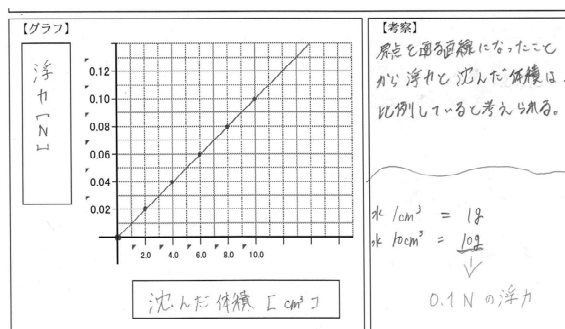 【グラフ】
浮力[N]
0.12
0.10
0.08
0.06
0.04
0.02
0
2.0 4.0 6.0 8.0 10.0
沈んだ体積[cm³]
【考察】
原点を通る直線になったこと
から浮力と沈んだ体積は、
比例していると考えられる。
水1cm³ = 1g
水10cm³ = 10g
0.1Nの浮力